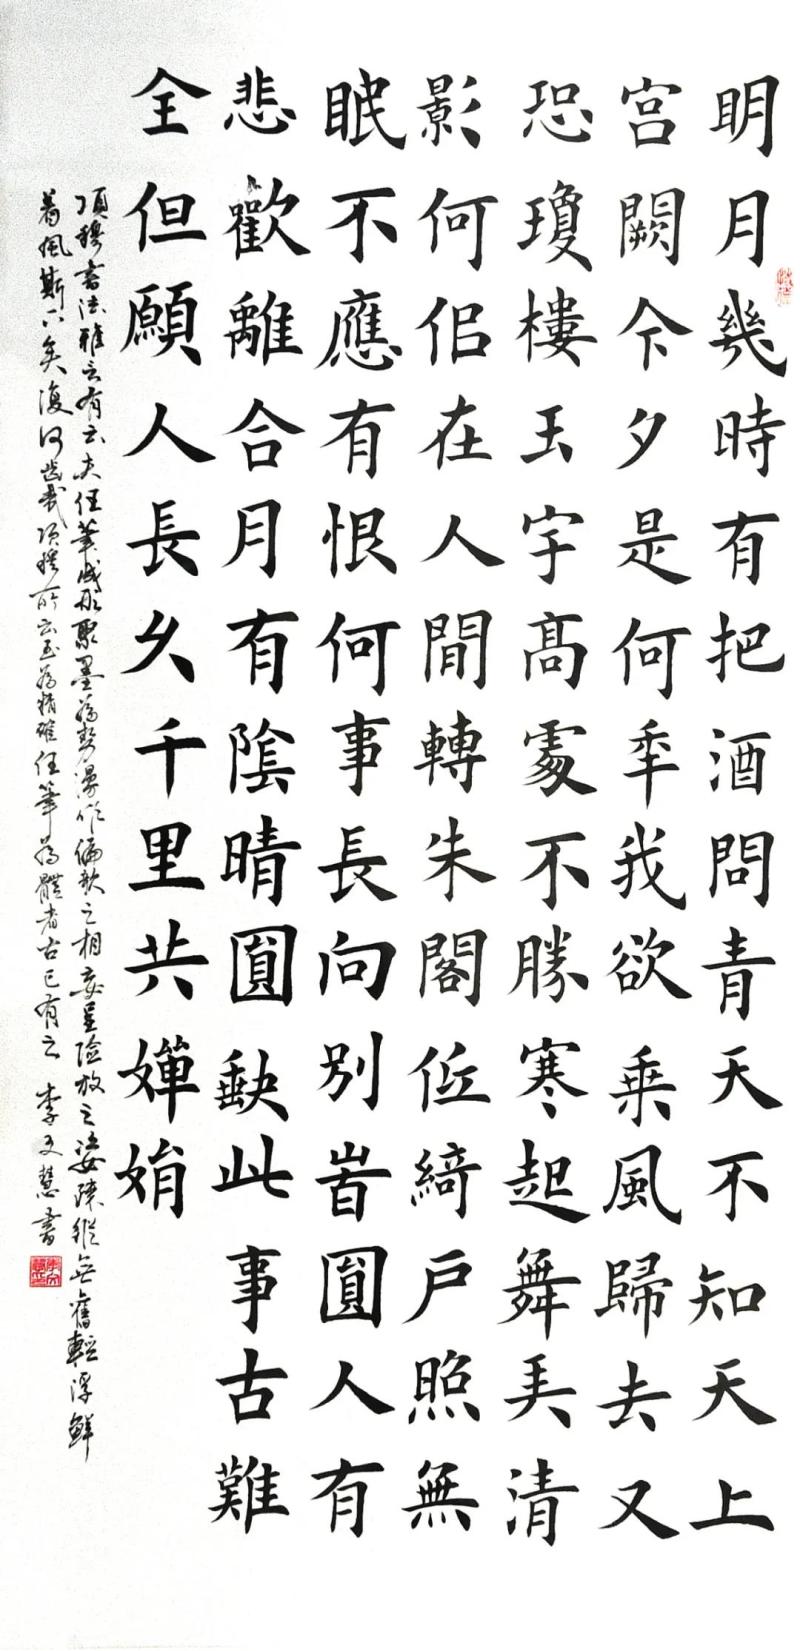 明月幾時有把酒問青天不知天上
宮闕今夕是何年我欲乘風歸去又
恐瓊樓玉宇高處不勝寒起舞弄清
影何佀在人間轉朱閣低綺戶照無
眠不應有恨何事長向別旹圓人有
悲歡離合月有陰晴圓缺此事古難
全但願人長久千里共嬋娟
項穆書法雅言有云夫任筆成形聚墨為勢漫作偏欹之相妄呈險放之姿疎縱無舊輕浮鮮
着風斯下矣復何齒哉項穆所云至為精確任筆為體者古已有之 李文慧書